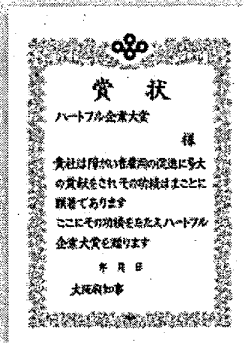 賞状
ハートフル企業大賞
様
貴社は障がい者雇用の促進に多大
の貢献をされその功績はまことに
顕著であります
ここにその功績をたたえハートフル
企業大賞を贈ります
年 月 日
大阪府知事